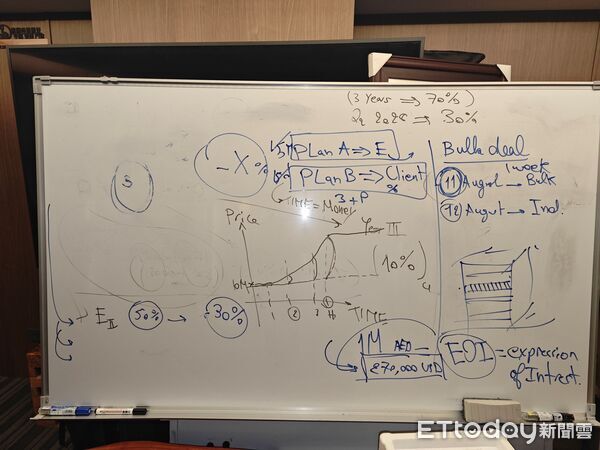 (3 Years ⇒ 70%)
2026 ⇒ 30%
-X%
PLan A ⇒ E
PLan B ⇒ Client
%
3+P
TIME = Money
Bulk deal
1 week
11 August → Bulk
12 August → Ind.
5
Price
III
(10%)
TIME
E II 50% → -30%
1M AED =
270,000 USD
EOI = expression
of Intrest.
ETtoday新聞雲